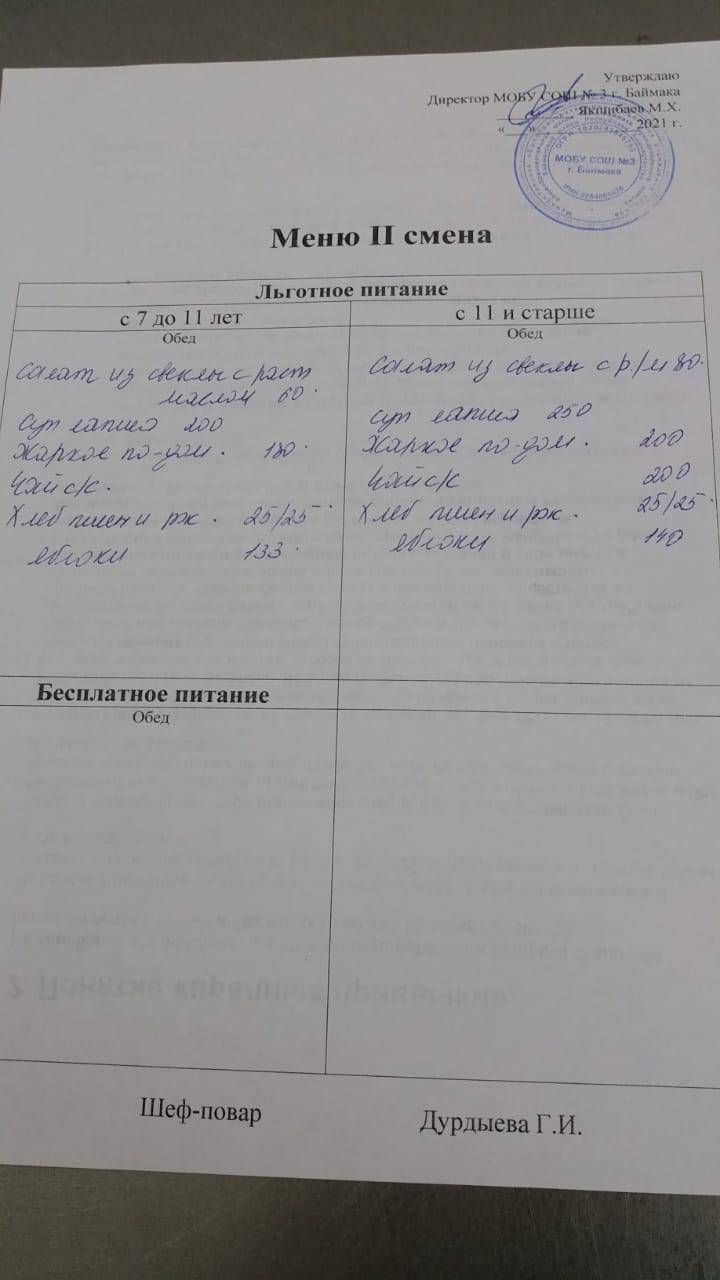 Утверждаю
Директор МОБУ СОШ № 3 г. Баймака
Якшибаев М.Х.
«___» 2021 г.
МОБУ СОШ №3
г. Баймака
Меню II смена
Льготное питание
с 7 до 11 лет
Обед
Салат из свеклы с раст
маслом 60.
Суп лапша 200
Жаркое по-дом. 180.
Чай с/с.
Хлеб пшен и рж. 25/25.
яблоки 133.
с 11 и старше
Обед
Салат из свеклы с р./м 80.
суп лапша 250
Жаркое по-дом. 200
Чай с/с 200
Хлеб пшен и рж. 25/25.
яблоки 140
Бесплатное питание
Обед
2. Понятие
Шеф-повар
Дурдыева Г.И.